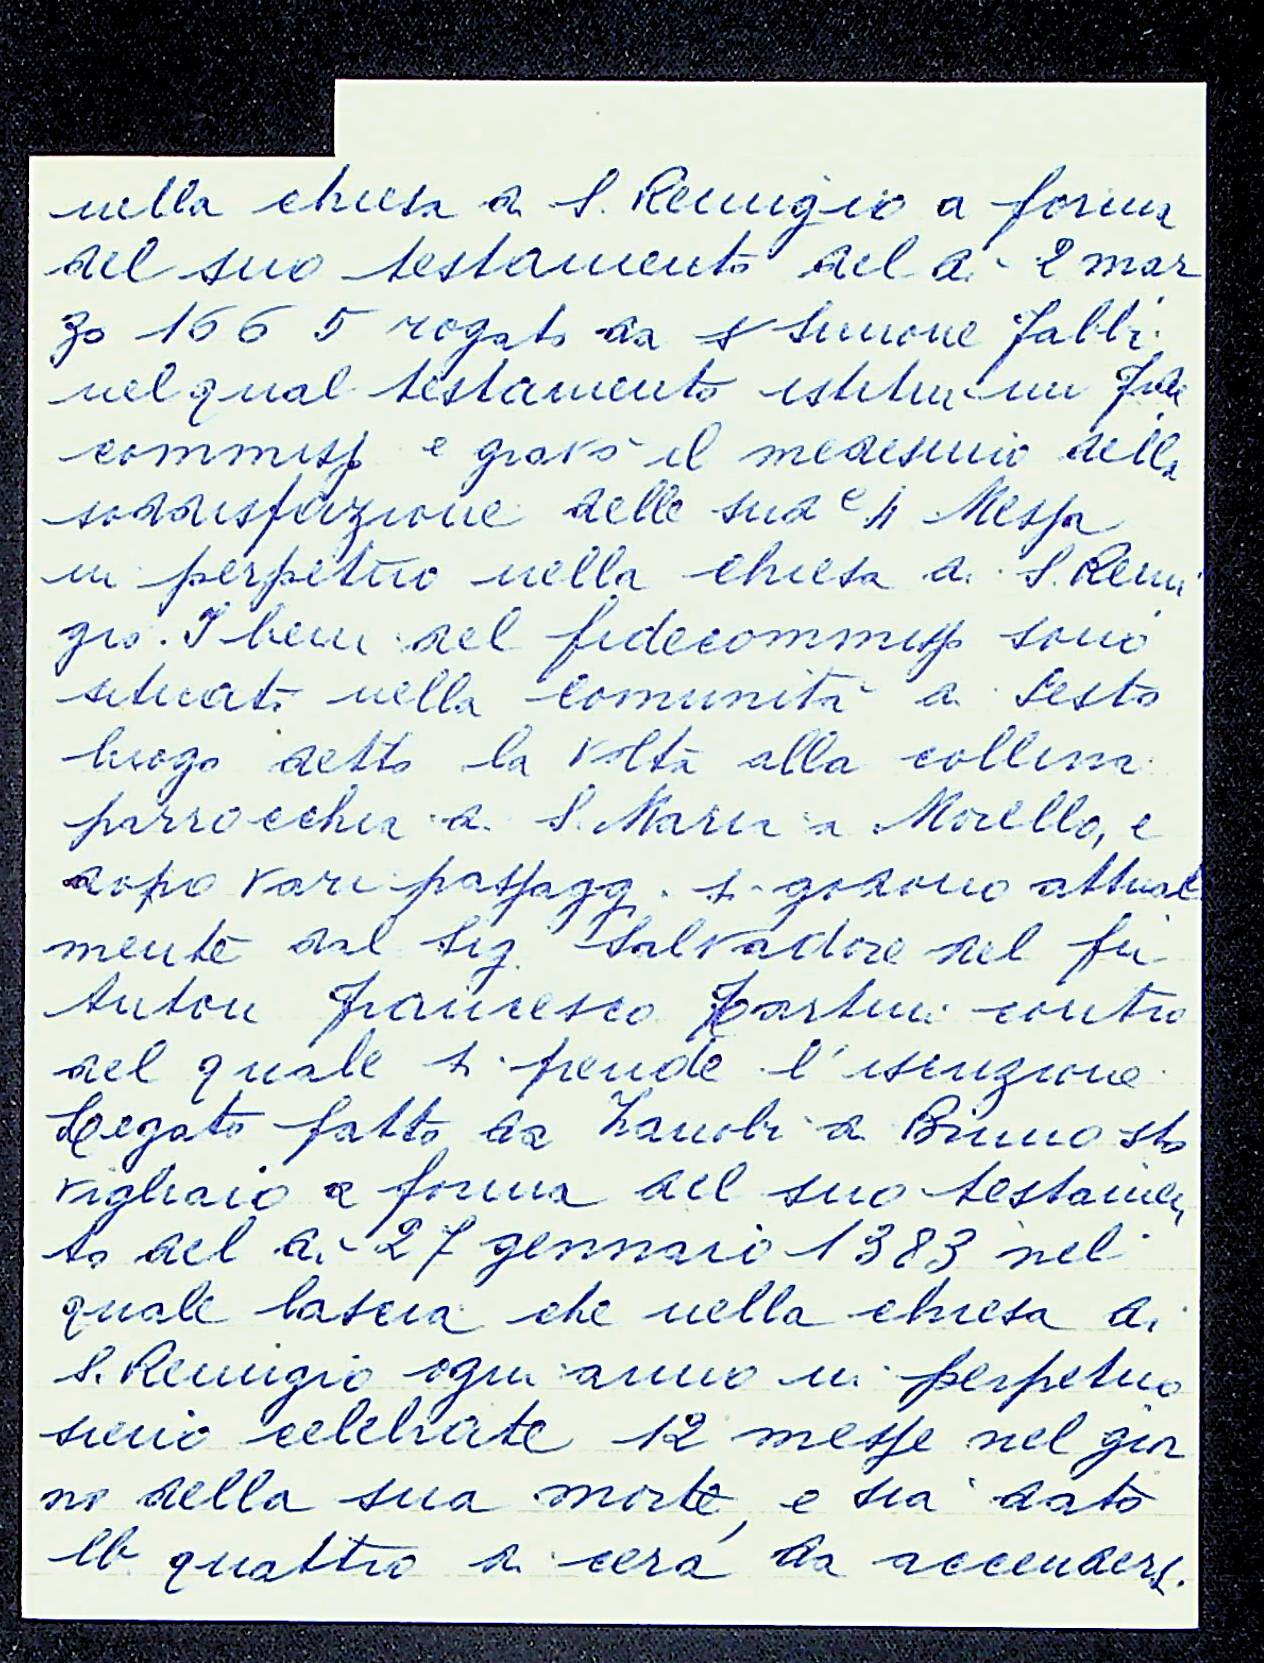 nella chiesa di S. Remigio a forma
del suo testamento del di 2 mar
zo 1665 rogato da s Simone Fabbri
nel qual testamento istituì un fide
commisso e gravò il medesimo della
soddisfazione delle sud e 4 Messa
in perpetuo nella chiesa di S. Remi
gio. I beni del fidecommisso sono
situati nella comunità di Sesto
luogo detto la Volta alla collina
parrocchia di S. Maria a Morello, e
dopo vari passagg. si godono attual
mente dal Sig. Salvadore del fu
Anton Francesco Martini contro
del quale si pende l'isenzione
Legato fatto da Zanobi di Buono sto
vigliaio a forma del suo testamen
to del di 27 gennaio 1383 nel
quale lascia che nella chiesa di
S. Remigio ogni anno in perpetuo
sieno celebrate 12 messe nel gior
no della sua morte, e sia dato
lb quattro di cera da accendersi.